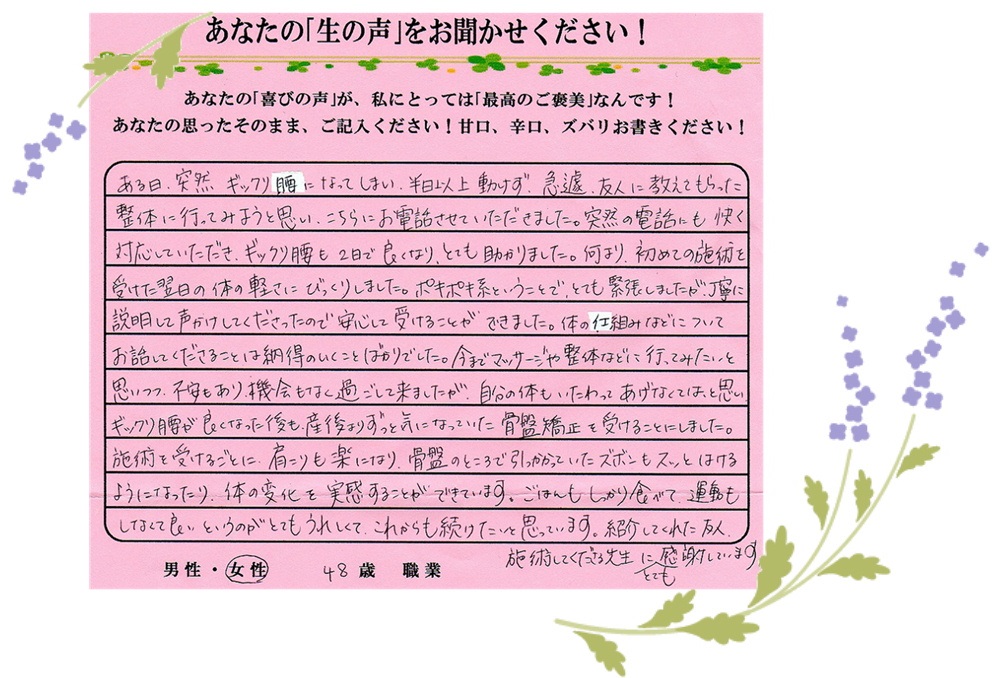 あなたの「生の声」をお聞かせください！
あなたの「喜びの声」が、私にとっては「最高のご褒美」なんです！
あなたの思ったそのまま、ご記入ください！甘口、辛口、ズバリお書きください！
ある日、突然 ギックリ腰になってしまい、半日以上動けず、急遽、友人に教えてもらった
整体に行ってみようと思い、こちらにお電話させていただきました。突然の電話にも 快く
対応していただき、ギックリ腰も 2日で良くなり、とても助かりました。何より、初めての施術を
受けた翌日の体の軽さにびっくりしました。ポキポキ系ということで、とても緊張しましたが、丁寧に
説明して声かけしてくださったので安心して受けることができました。体の仕組みなどについて
お話してくださることは納得のいくことばかりでした。今までマッサージや整体などに行ってみたいと
思いつつ、不安もあり、機会もなく過ごして来ましたが、自分の体もいたわってあげなくてはと思い、
ギックリ腰が良くなった後も、産後よりずっと気になっていた骨盤矯正を受けることにしました。
施術を受けるごとに、肩こりも楽になり、骨盤のところで引っかかっていたズボンもスッとはける
ようになったり、体の変化を実感することができています。ごはんもしっかり食べて、運動も
しなくて良いというのがとてもうれしくて、これからも続けたいと思っています。紹介してくれた友人、
施術してくださる先生にとても感謝しています
男性・女性 48歳 職業